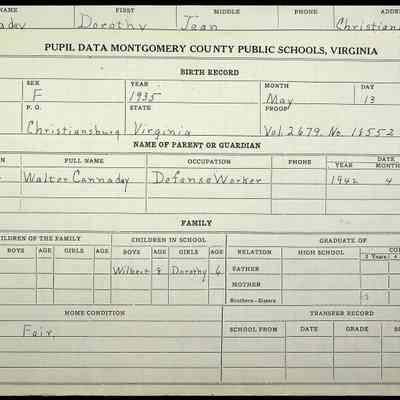 NAME FIRST MIDDLE PHONE
Dorothy Jean Christians
PUPIL DATA MONTGOMERY COUNTY PUBLIC SCHOOLS, VIRGINIA
BIRTH RECORD
SEX YEAR MONTH DAY
F 1935 May 13
P. O. STATE PROOF
Christiansburg Virginia Vol. 2679. No. 18552
NAME OF PARENT OR GUARDIAN
FULL NAME OCCUPATION PHONE DATE
YEAR MONTH
Walter Cannaday Defense Worker 1942 4
FAMILY
CHILDREN OF THE FAMILY CHILDREN IN SCHOOL GRADUATE OF
BOYS AGE GIRLS AGE BOYS AGE GIRLS AGE RELATION HIGH SCHOOL
2 Years 4
Wilbert 8 Dorothy 6 FATHER
MOTHER
Brothers-Sisters
HOME CONDITION TRANSFER RECORD
Fair SCHOOL FROM DATE GRADE